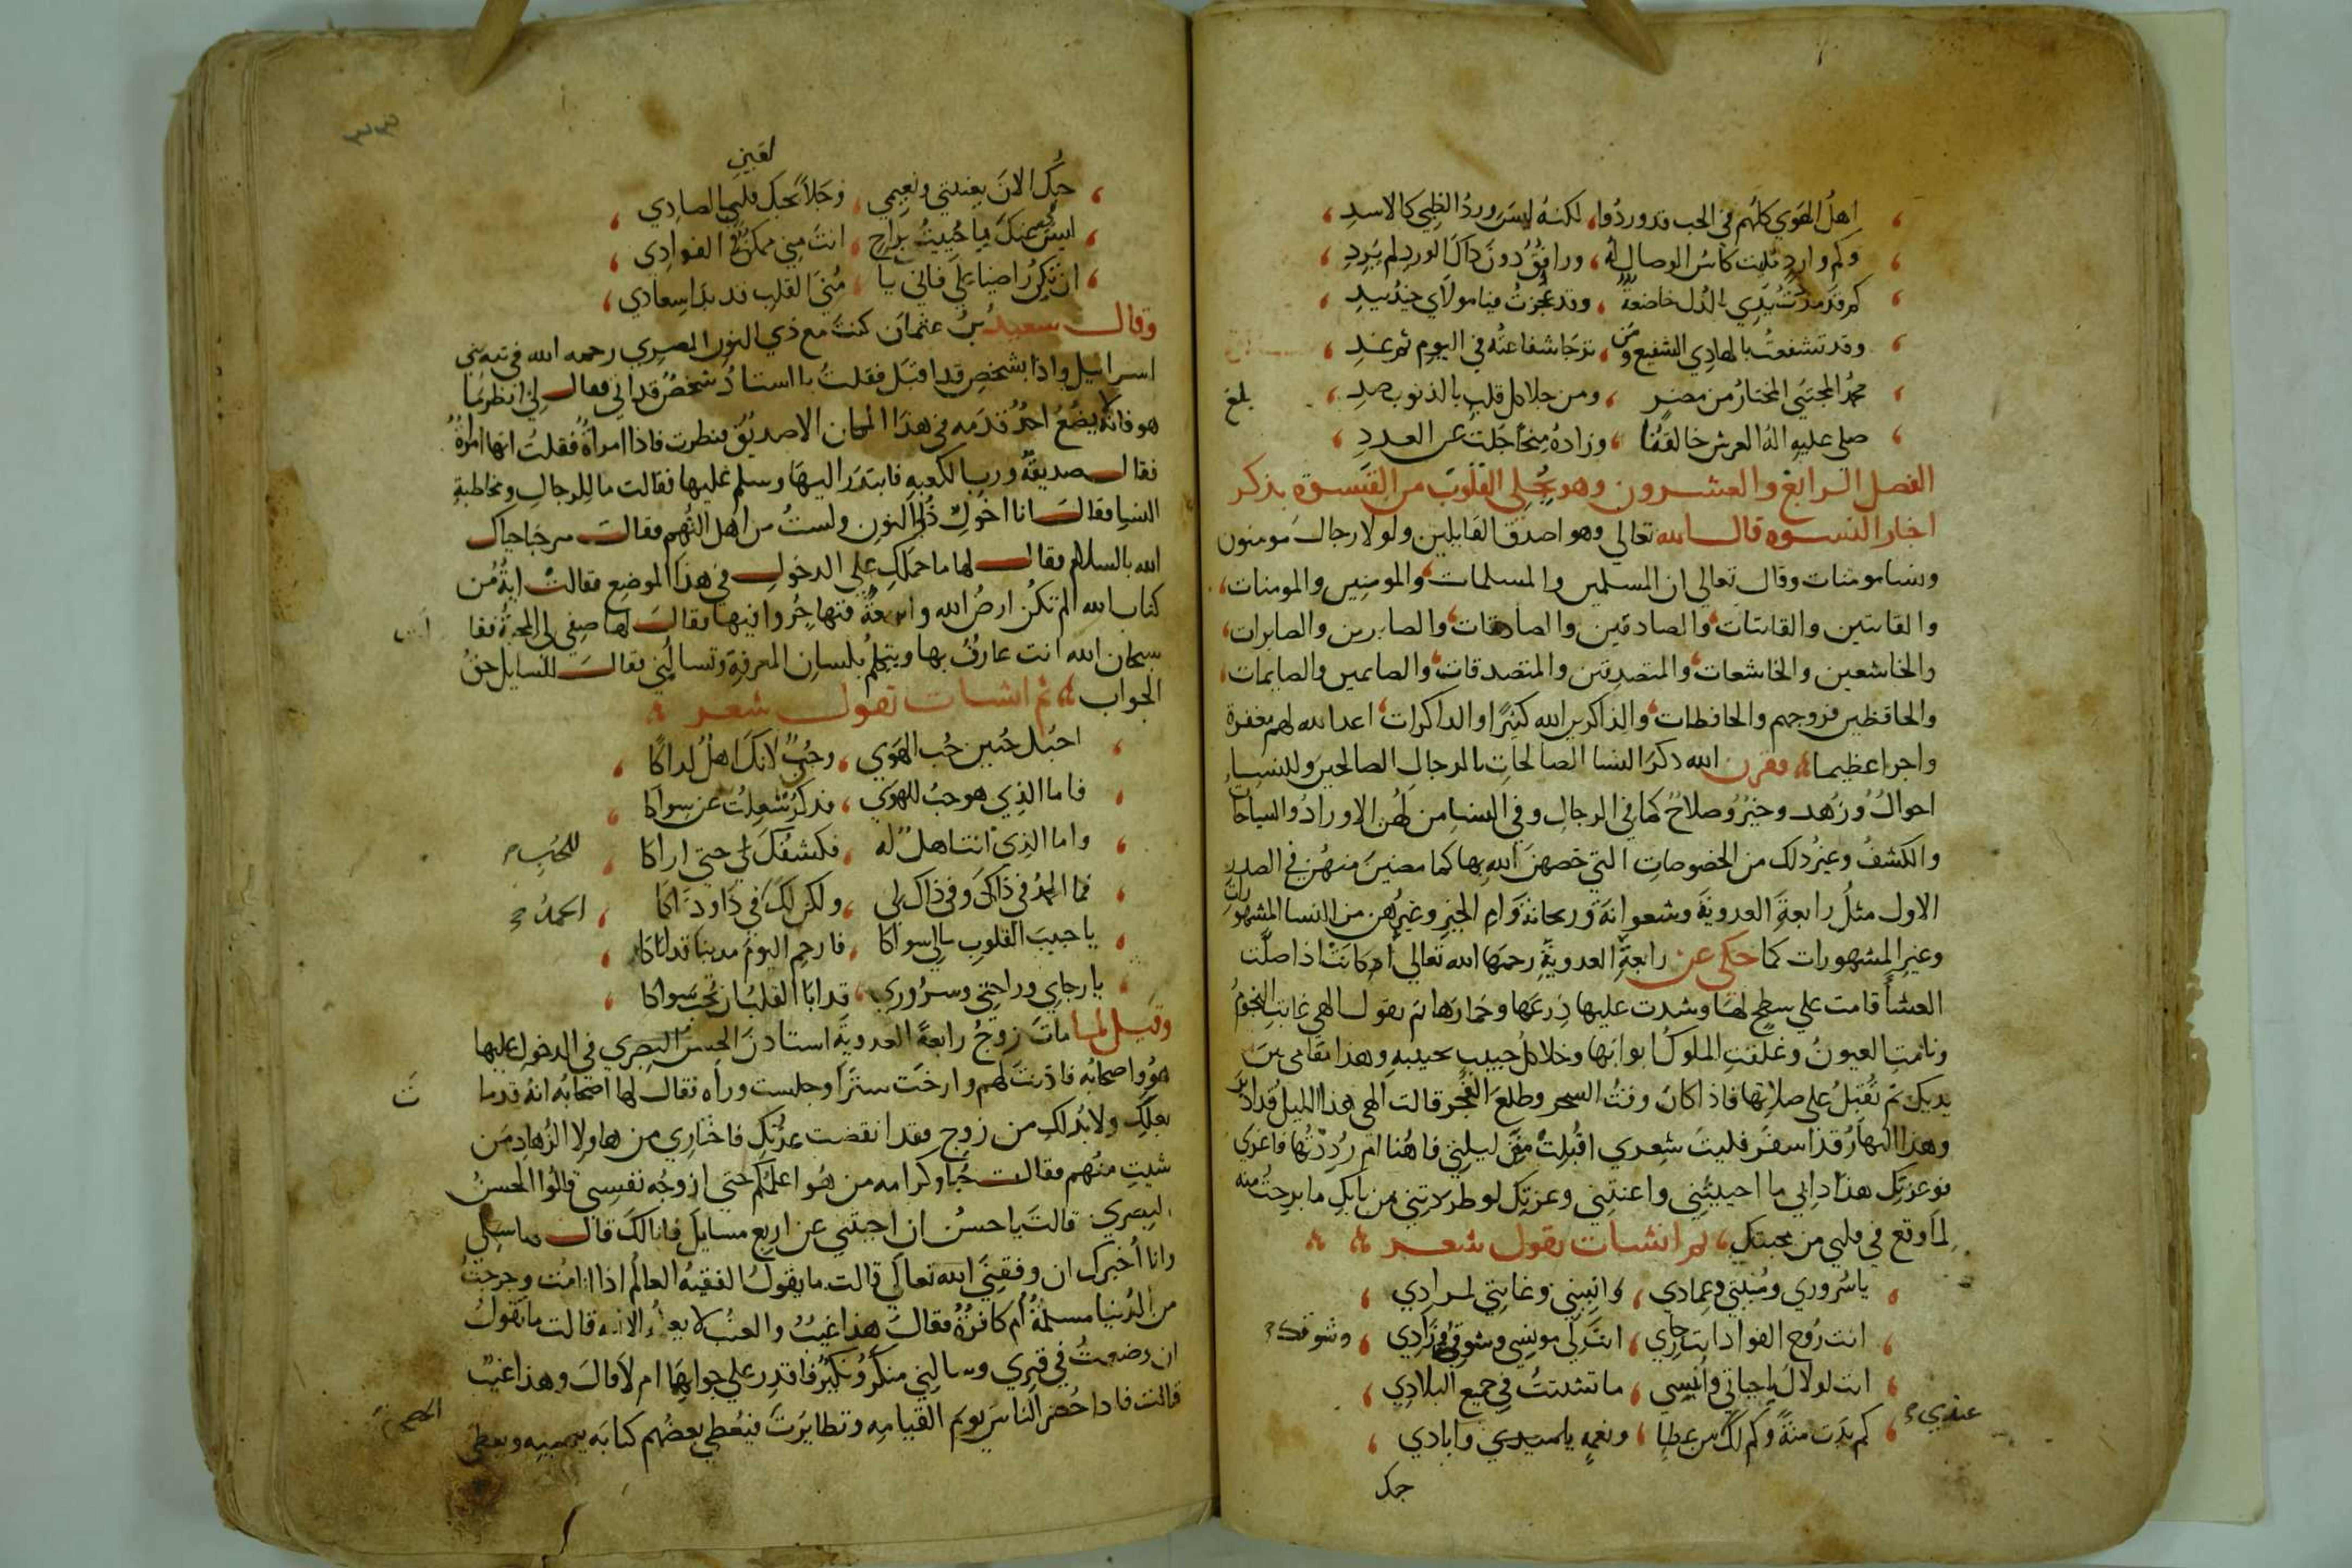 اهلُ الهَوَي كلهُم في الحب قد وردُوا ، لكنهُ ليسَ وردُ الظبي كالاسدِ
وكم واردٍ تلهت كاسُ الوصال لهُ ، ورائقُ دونَ ذاكَ الوردِ لم يَرِدِ
كم قد مددتُ يَدِي بالذل خاضعةً ، وقد عجزتُ فيا مولاي خذ بيدِ
وقد تشفعتُ بالهادِي الشفيع ومن ، ترجا شفاعته في اليومِ ثم غدِ
محمدُ المجتبَي المختارُ من مضرٍ ، ومن جلا كل قلبٍ بالذنوبِ صدِ
بلغ
صلي عليهِ الهُ العرش خالقُنا ، وزادهُ مِنحًا جَلت عن العددِ
الفصل الرابع والعشرون وهو تجلي القلوب من القسوة بذكر
اخبار النسوه قال الله تعالي وهو اصدق القايلين ولولا رجالٌ مومنون
ونسا مومنات وقال تعالي ان المسلمين والمسلمات والمومنين والمومنات
والقانتين والقانتات والصادقين والصادقات والصابرين والصابرات
والخاشعين والخاشعات والمتصدقين والمتصدقات والصايمين والصايمات
والحافظين فروجهم والحافظات والذاكرين الله كثيرًا والذاكرات اعد الله لهم مغفرة
واجرا عظيما فقرن الله ذكر النسا الصالحات بالرجال الصالحين وللنساء
احوالٌ وزُهد وخيرٌ وصلاحٌ كما في الرجال وفي النسا من لهُن الاورادُ والسياحات
والكشفُ وغيرُ ذلك من الخصوصات التي خصهنَ الله بها كما مضينَ منهُن في الصدر
الاول مثلُ رابعة العدوية وشعوانة وريحانة وام الخير وغيرُهن من النسا المشهورات
وغير المشهورات كما حكي عن رابعة العدوية رحمها الله تعالي انها كانت اذا صلت
العشا قامت علي سطحٍ لها وشدت عليها دِرعَها وخمارَها ثم تقول الهي غابت النجومُ
ونامتِ العيونُ وغلقتِ الملوكُ ابوابها وخلا كلُ حبيبٍ بحبيبه وهذا مقامي بينَ
يديك ثم تُقبِلُ علي صلاتِها فاذا كانَ وقتُ السحر وطلعَ الفجر قالت الهي هذا الليلُ قد ادبر
وهذا النهارُ قد اسفر فليتَ شِعري اقُبِلتْ مِني ليلتِي فاهُنا ام رُدِدْتُها فاعزي
فوعزتِك هذا دابي ما احييتني واعنتني وعزتِك لو طردتني من بابك ما برحتُ منه
لما وقع في قلبي من محبتك ثم انشات تقول شعر
ياسُروري ومُنيتي وعِمادي ، وانيسِي وغايتي لمرادِي
انت رُوح الفوادِ انت رجاي ، انتَ لي مونسِي وشوقي زادِي
وشوقك
انت لولاكَ يا حياتي وانسِي ، ما تشتتتُ في جميع البلادِي
كم بدَت منةٌ وكم لك من عطايا ، ونعمٍ يا سيدي وايادي
عندي
حبك
لقيني
حبُك الانَ بغيتي ونعيمي ، وجَلاً بحبكَ قلبي الصادِي
ليسَ عنكَ ما حُييتُ براحٍ ، انتَ مِني ممكنٌ في الفوادِي
ان تكُن راضيا علي فاني يا ، مُنَي القلبِ قد بدَا اِسعادي
وقال سعيدُ بنُ عثمان كنت مع ذي النون المصري رحمه الله في تيه بني
اسرائيل واذا بشخصٍ قد اقبَل فقلتُ يا استادُ شخصٌ قد اتي فقال لِي انظر ما
هو فانهُ لا يضعُ احدٌ قدَمه في هذا المكان الا صديقٌ فنظرت فاذا امراةٌ فقلتُ انها امراةٌ
فقال صديقةٌ ورب الكعبه فابتدَر اليها وسلم عليها فقالت ما للرجالِ ومخاطبةِ
النسا فقال انا اخوكِ ذُو النون ولستُ من اهل التُهم فقالت مرحبَا حياك
الله بالسلام فقال لها ما حملكِ علي الدخول في هذا الموضع فقالت ايةٌ من
كتاب الله الم تكُن ارضُ الله واسِعةً فتهاجرُوا فيها فقال لها صِفي لي المحبةَ فقا
لت
سبحان الله انت عارفٌ بها وتتكلمُ بلسان المعرفةِ وتسالُني فقال للسايل حقُ
الجواب ثم انشات تقول شعر
احبُك حُبين حُب الهَوَي ، وحُبٌ لانكَ اهلٌ لذاكا
فاما الذي هو حبُ للهوَي ، فذكرٌ شُغِلتُ عن سواكا
واما الذي انت اهلٌ له ، فكشفُكَ لي حتي اراكا
للحُب
فما الحمدُ في ذاكَ وفي ذاك لي ، ولكن لكَ في ذَا وذاكا
الحمدُ
يا حبيبَ القلوبِ مالي سواكا ، فارحمِ اليومَ مدنبا قد اتاكا
يا رجاي وراحتِي وسرُورِي ، قد ابَا القلبُ ان يحُب سواكا
وقيل لما ماتَ زوجُ رابعة العدوية استاذنَ الحسنُ البصري في الدخول عليها
هو واصحابُه فاذنت لهم وارخت سترًا وجلست وراه فقال لها اصحابُه انهُ قد ما
ت
بعلكِ ولا بُد لكِ من زوجٍ فقد انقضت عدتكِ فاختارِي من هاولا الزُهادِ من
شيتِ منهُم فقالت حُبا وكرامه من هُو اعلمُكم حتي ازوجُه نفسِي قالُوا الحسنُ
البصري قالت يا حسنُ ان اجبتَني عن اربع مسايلَ فانا لكَ قال سلي
وانا اُخبرك ان وفقني الله تعالي قالت ما يقولُ الفقيهُ العالمُ اذا انا مُت وخرجتُ
من الدُنيا مسلمةٌ اُم كافرةٌ فقال هذا غيبٌ والغيبُ لا يعلمُه الا الله قالت ما تقولُ
ان وضعتُ في قبري وسالني منكرٌ ونكيرٌ فاقدِر علي جوابهما ام لا قال وهذا غيبٌ
قالت فاذا حُضر الناس يوم القيامه وتطايَرَت فيُعطي بعضُهم كتابَه بيمينِه ويعطي
الصحف